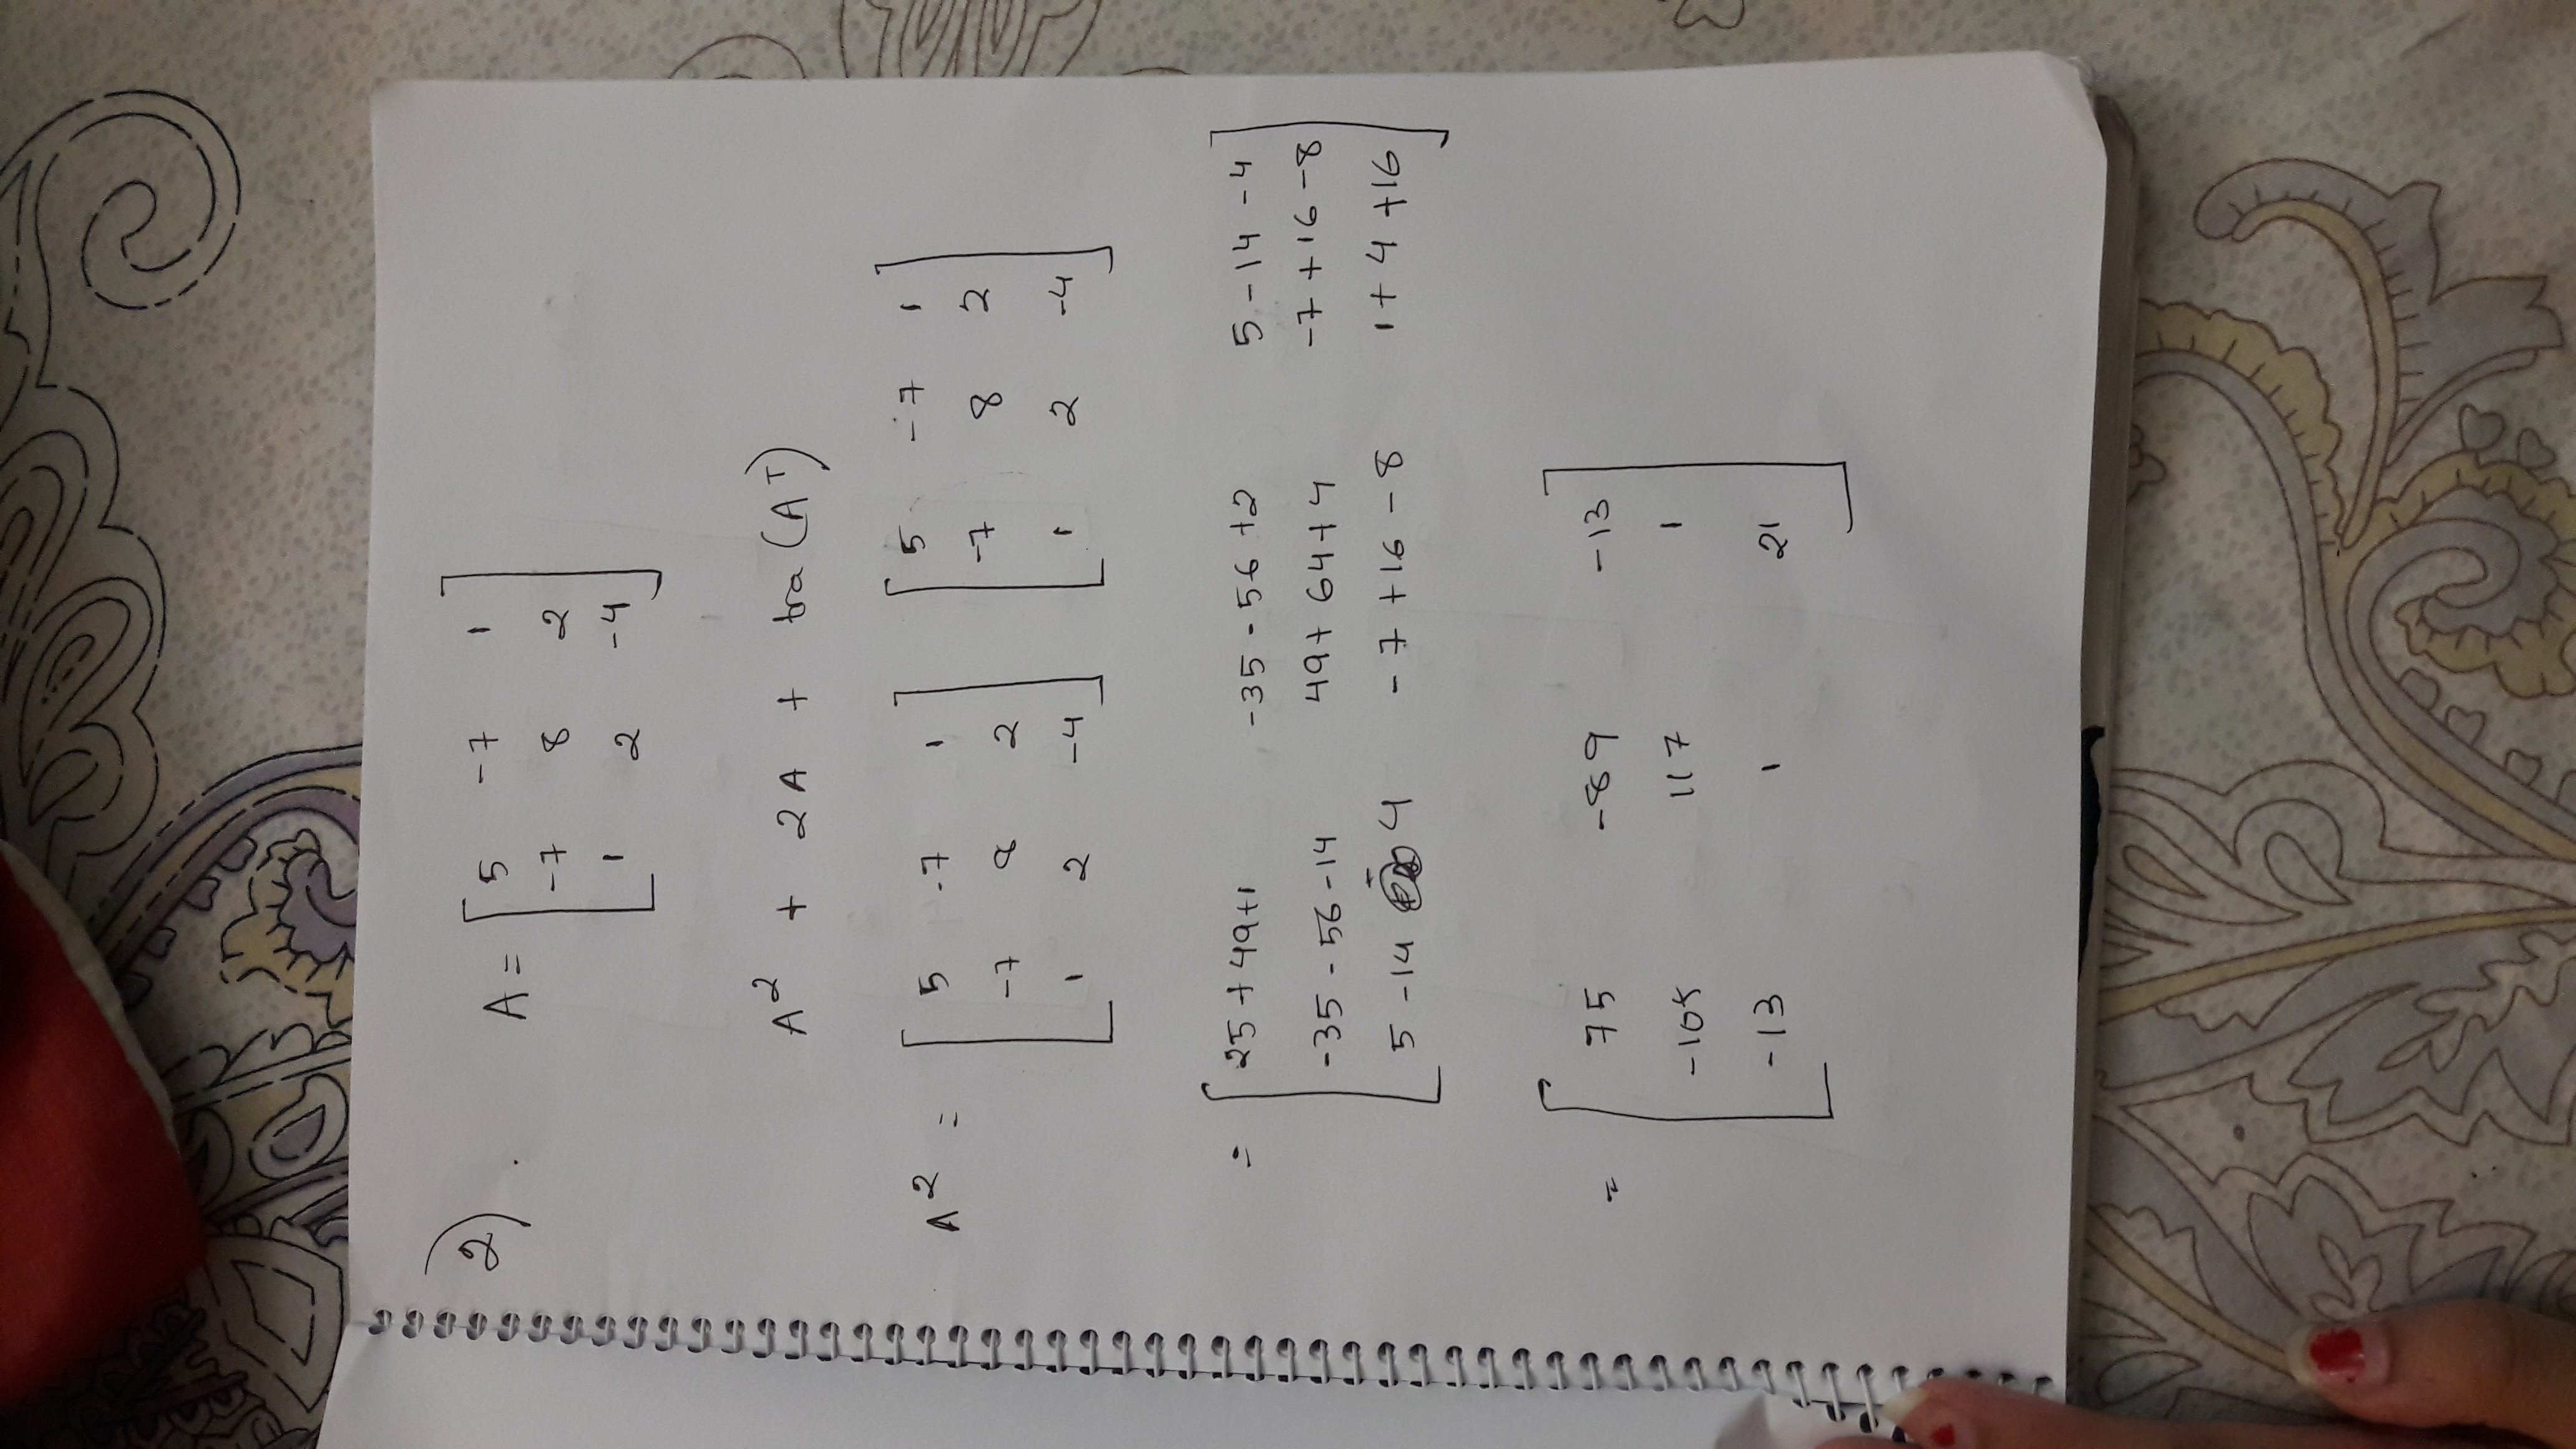 2)
A = [ 5 -7 1
-7 8 2
1 2 -4 ]
A² + 2A + tra (Aᵀ)
A² = [ 5 -7 1 [ 5 -7 1
-7 8 2 -7 8 2
1 2 -4 ] 1 2 -4 ]
= [ 25 + 49 + 1 -35 - 56 + 2 5 - 14 - 4
-35 - 56 - 14 49 + 64 + 4 -7 + 16 - 8
5 - 14 - 4 -7 + 16 - 8 1 + 4 + 16 ]
= [ 75 -89 -13
-105 117 1
-13 1 21 ]